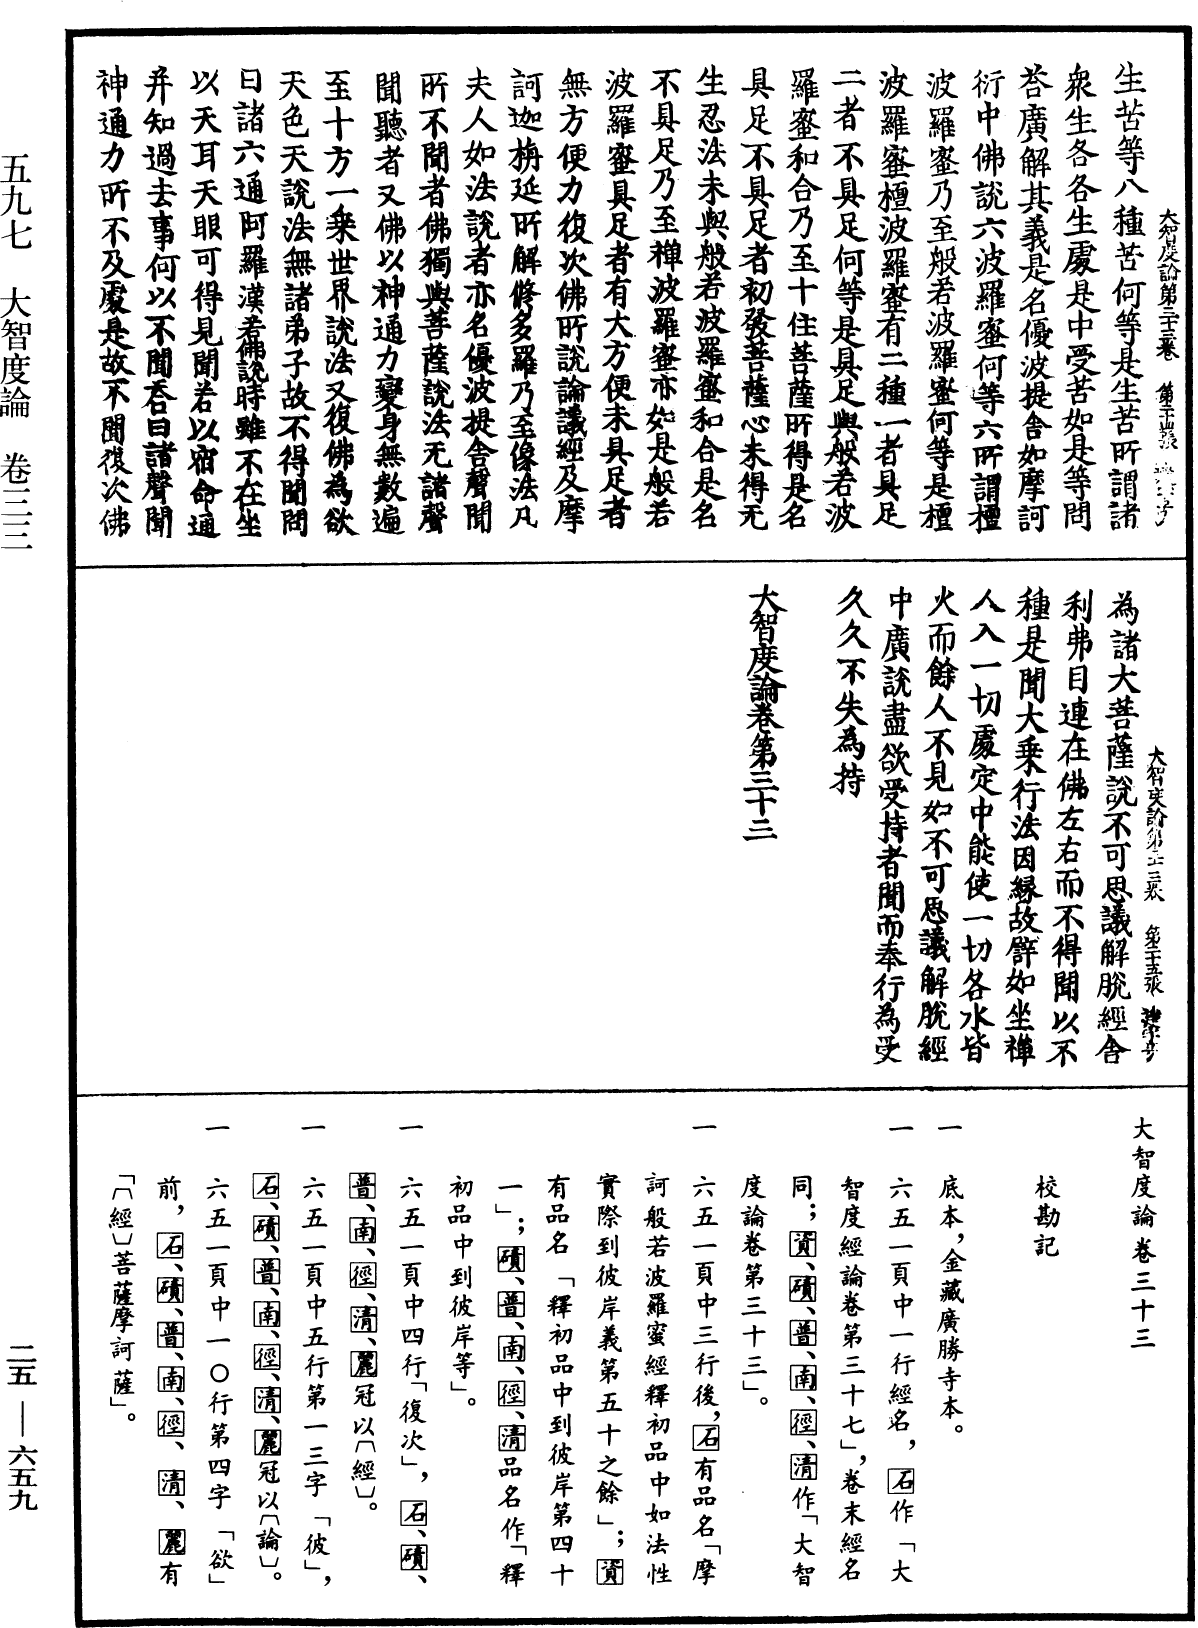 大智度論第三十三卷　第二十四張
生苦等八種苦何等是生苦所謂諸
衆生各各生處是中受苦如是等問
荅廣解其義是名優波提舍如摩訶
衍中佛說六波羅蜜何等六所謂檀
波羅蜜乃至般若波羅蜜何等是檀
波羅蜜檀波羅蜜有二種一者具足
二者不具足何等是具足與般若波
羅蜜和合乃至十住菩薩所得是名
具足不具足者初發菩薩心未得无
生忍法未與般若波羅蜜和合是名
不具足乃至禅波羅蜜亦如是般若
波羅蜜具足者有大方便未具足者
無方便力復次佛所說論議經及摩
訶迦栴延所解修多羅乃至像法凡
夫人如法說者亦名優波提舍聲聞
所不聞者佛獨與菩薩說法无諸聲
聞聽者又佛以神通力變身無數遍
至十方一乗世界說法又復佛為欲
天色天說法無諸弟子故不得聞問
曰諸六通阿羅漢若佛說時雖不在坐
以天耳天眼可得見聞若以宿命通
并知過去事何以不聞荅曰諸聲聞
神通力所不及處是故不聞復次佛
大智度論第三十三卷　第二十五張
為諸大菩薩說不可思議解脫經舍
利弗目連在佛左右而不得聞以不
種是聞大乗行法因縁故譬如坐禅
人入一切處定中能使一切各水皆
火而餘人不見如不可思議解脫經
中廣說盡欲受持者聞而奉行為受
久久不失為持
大智度論卷第三十三
大智度論卷三十三
校勘記
一　底本，金藏廣勝寺本。
一　六五一頁中一行經名，石作「大
智度經論卷第三十七」，卷末經名
同；資、磧、普、南、徑、清作「大智
度論卷第三十三」。
一　六五一頁中三行後，石有品名「摩
訶般若波羅蜜經釋初品中如法性
實際到彼岸義第五十之餘」；資
有品名「釋初品中到彼岸第四十
一」；磧、普、南、徑、清品名作「釋
初品中到彼岸等」。
一　六五一頁中四行「復次」，石、磧、
普、南、徑、清、麗冠以〔經〕。
一　六五一頁中五行第一三字「彼」，
石、磧、普、南、徑、清、麗冠以〔論〕。
一　六五一頁中一〇行第四字「欲」
前，石、磧、普、南、徑、清、麗有
「〔經〕菩薩摩訶薩」。
五九七　大智度論　卷三三
二五　—　六五九